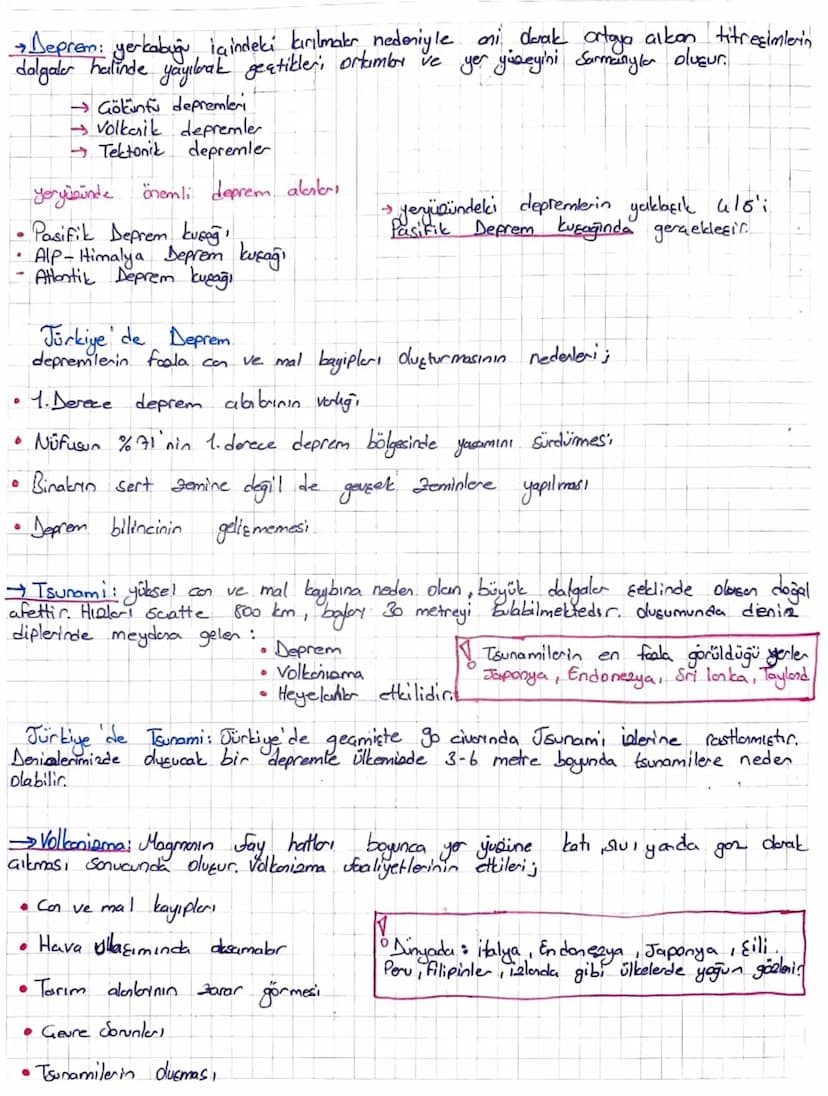 → Deprem: yerkabuğu içindeki kırılmalar nedeniyle ani olarak ortaya çıkan titreşimlerin
dalgalar halinde yayılarak geçtikleri ortamları ve yer yüzeyini sarmasıyla oluşur.
→ Çöküntü depremleri
→ Volkanik depremler
→ Tektonik depremler
yeryüzünde önemli deprem alanları
• Pasifik Deprem kuşağı
• Alp-Himalya Deprem kuşağı
- Atlantik Deprem kuşağı
→ yeryüzündeki depremlerin yaklaşık 4/5'i
Pasifik Deprem kuşağında gerçekleşir.
Türkiye'de Deprem
depremlerin fazla can ve mal kayıpları oluşturmasının nedenleri;
• 1. Derece deprem alanlarının varlığı
• Nüfusun %71'nin 1. derece deprem bölgesinde yaşamını sürdürmesi
• Binaların sert zemine değil de gevşek zeminlere yapılması
• Deprem bilincinin gelişmemesi
→ Tsunami: yüksel can ve mal kaybına neden olan, büyük dalgalar şeklinde oluşan doğal
afettir. Hızları saatte 800 km, boyları 30 metreyi bulabilmektedir. oluşumunda deniz
diplerinde meydana gelen:
• Deprem
• Volkanizma
• Heyelanlar etkilidir.
! Tsunamilerin en fazla görüldüğü yerler
Japonya, Endonezya, Sri lanka, Tayland
Türkiye'de Tsunami: Türkiye'de geçmişte 90 civarında Tsunami izlerine rastlanmıştır.
Denizlerimizde oluşucak bir depremle ülkemizde 3-6 metre boyunda tsunamilere neden
olabilir.
→ Volkanizma: Magmanın fay hatları boyunca yer yüzüne katı, sıvı yada gaz olarak
çıkması sonucunda oluşur. Volkanizma faaliyetlerinin etkileri;
• Can ve mal kayıpları
• Hava ulaşımında aksamalar
• Tarım alanlarının zarar görmesi
• Çevre Sorunları
• Tsunamilerin oluşması
! Dünyada: italya, Endonezya, Japonya, Şili
Peru, Filipinler, izlanda gibi ülkelerde yoğun gözlenir